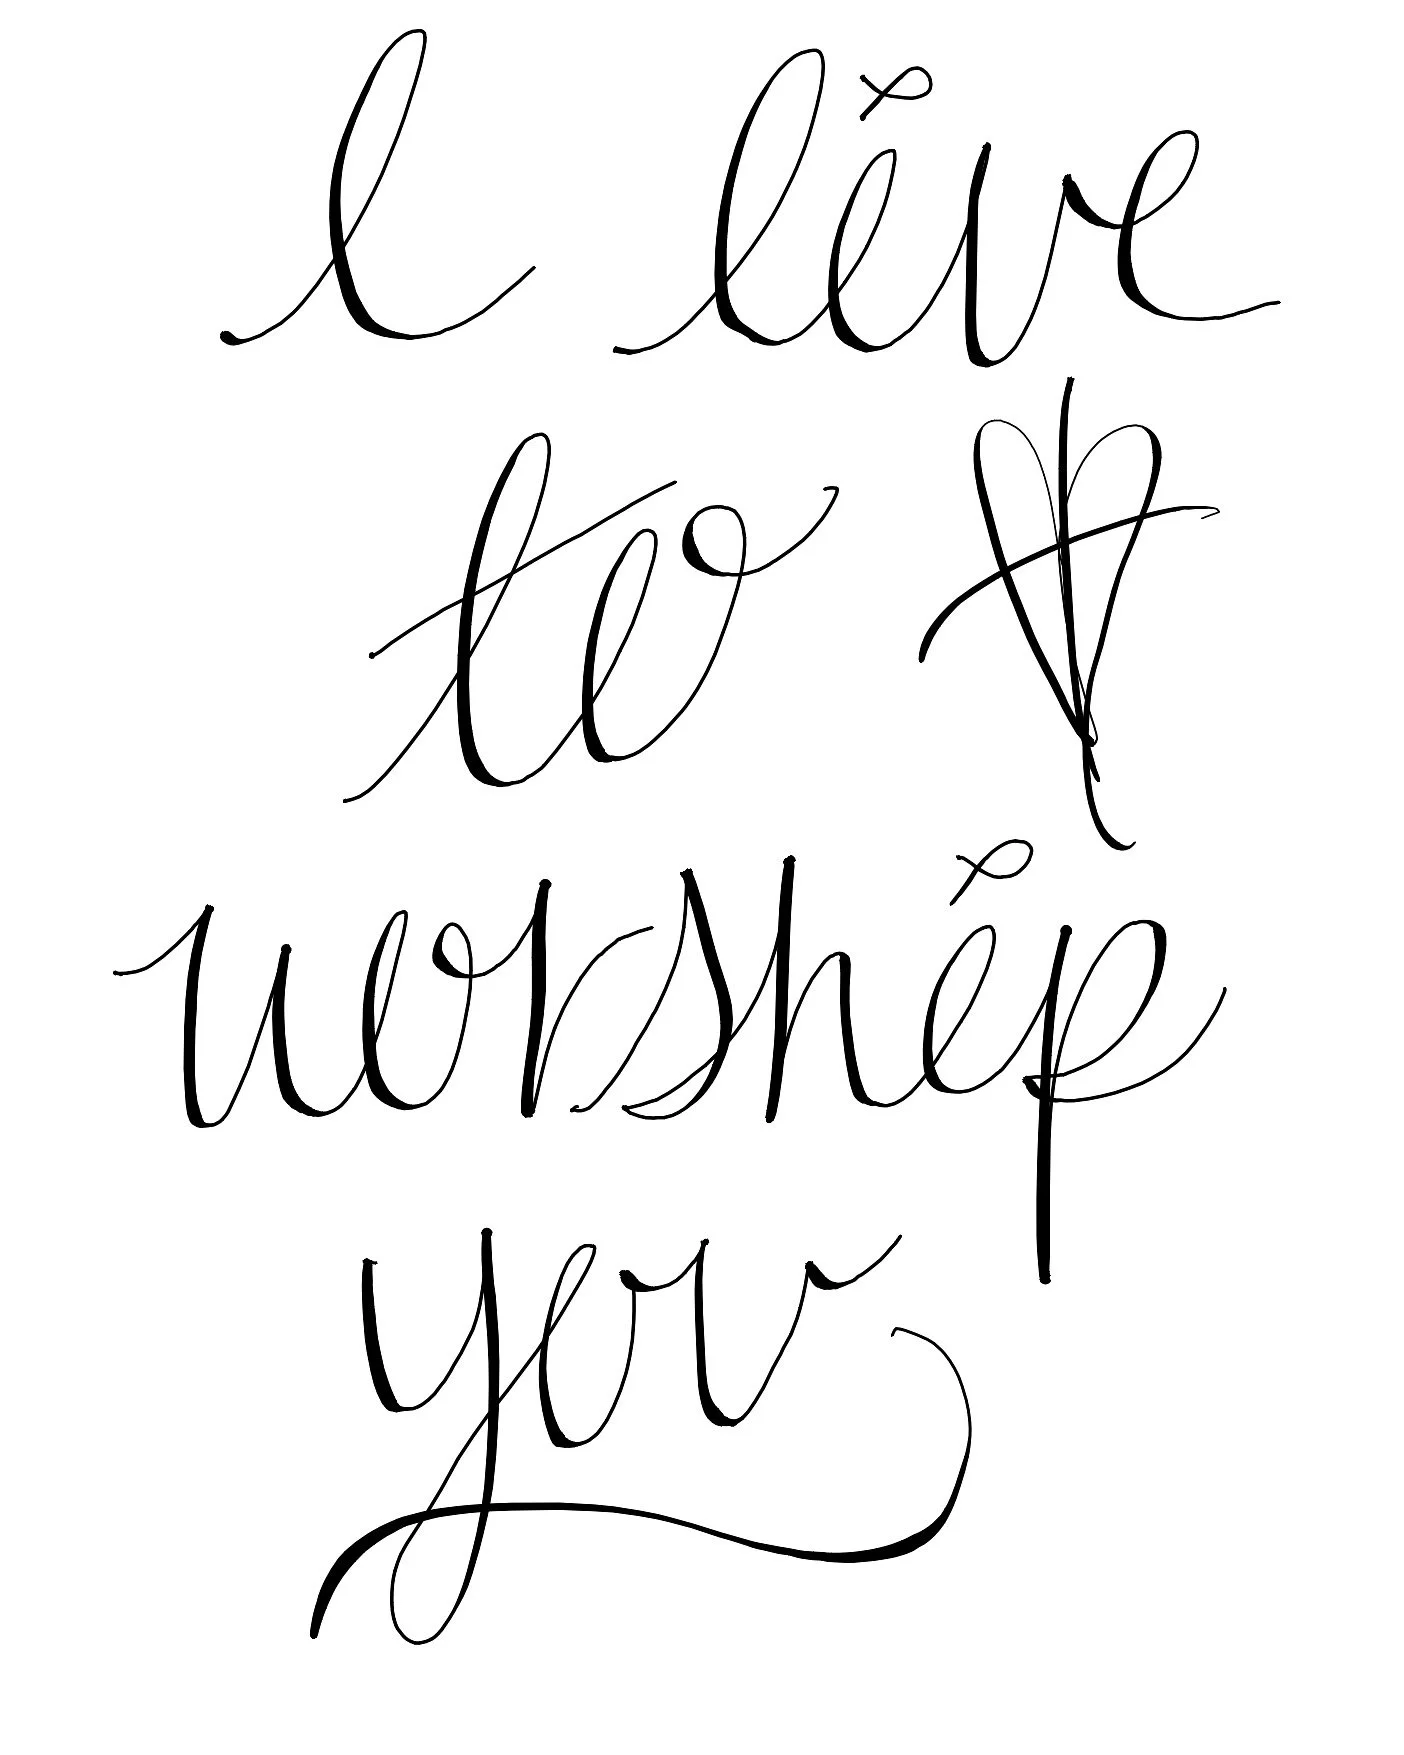 I live
to
worship
you